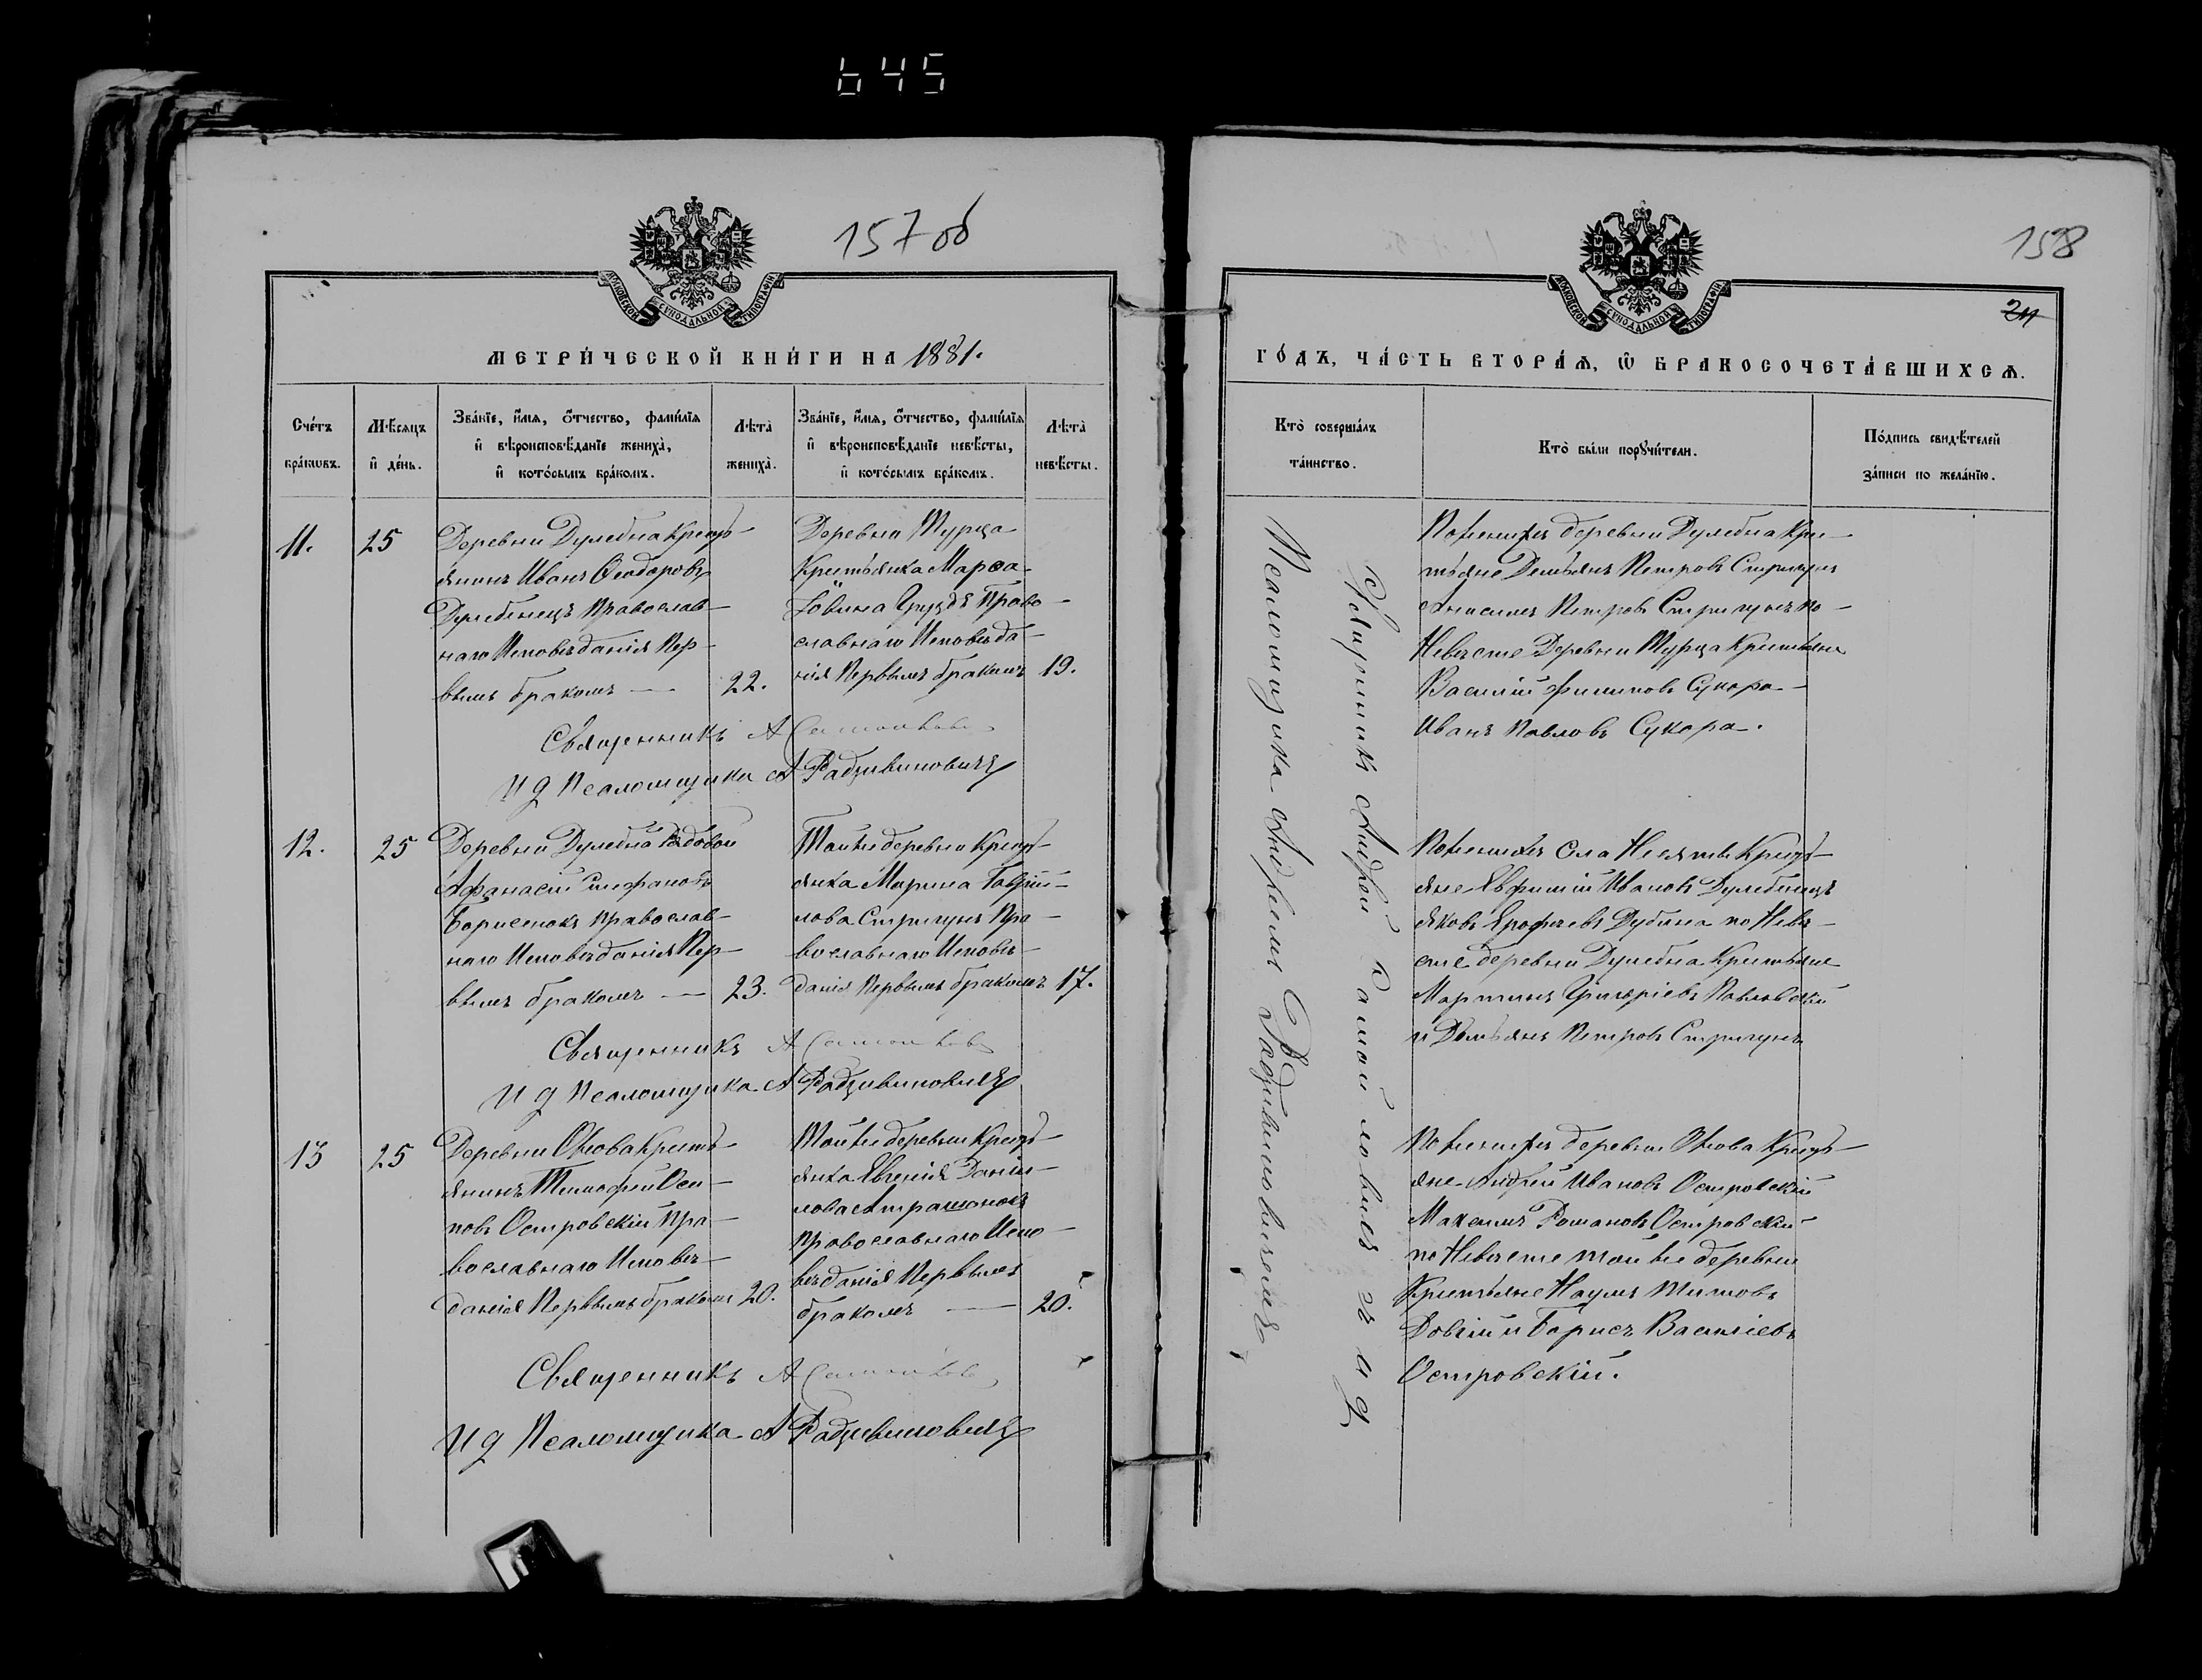 645
157 об
МОСКОВСКОЙ СѴНОДАЛЬНОЙ ТИПОГРАФІИ
МЕТРИ́ЧЕСКОЙ КНИ́ГИ НА 1881.
Сче́тъ бра́кωвъ.
Мѣ́сяцъ и҆ де́нь.
Зва́нїе, и҆́мѧ, ѻ҆́тчество, фами́лїѧ
и҆ вѣроисповѣ́данїе жениха̀,
и҆ кото́рымъ бра́комъ.
Лѣта̀ жениха̀.
Зва́нїе, и҆́мѧ, ѻ҆́тчество, фами́лїѧ
и҆ вѣроисповѣ́данїе невѣ́сты,
и҆ кото́рымъ бра́комъ.
Лѣта̀ невѣ́сты.
11.
25
Деревни Дулебна Кресть-
янинъ Иванъ Ѳеодоровъ
Дулебенецъ Православ-
наго Исповѣданія Пер-
вымъ бракомъ — 22.
Деревни Турца
Крестьянка Марѳа
Іовина Груздъ Право-
славнаго Исповѣда-
нія Первымъ бракомъ 19.
Священникъ А
И д Псаломщика А Радзивиновичъ
12.
25
Деревни Дулебна Рядовой
Афанасій Стефановъ
Борисенокъ Православ-
наго Исповѣданія Пер-
вымъ бракомъ — 23.
Той же деревни Кресть-
янка Марина Гаврии-
лова Стригунъ Пра-
вославнаго Исповѣ-
данія Первымъ бракомъ 17.
Священникъ А
И д Псаломщика А Радзивиновичъ
13
25
Деревни Ожова Кресть-
янинъ Тимофей Оси-
повъ Островскій Пра-
вославнаго Исповѣ-
данія Первымъ бракомъ 20.
Той же деревни Кресть-
янка Евгенія Дани-
лова Атрашонокъ
Православнаго Испо-
вѣданія Первымъ
бракомъ — 20.
Священникъ А
И д Псаломщика А Радзивиновичъ
158
24
МОСКОВСКОЙ СѴНОДАЛЬНОЙ ТИПОГРАФІИ
ГО́ДЪ, ЧА́СТЬ ВТОРА́Ѧ, Ѽ БРАКОСОЧЕТА́ВШИХСѦ.
Кто̀ соверша́лъ та́инство.
Кто̀ бы́ли порꙋчи́тели.
По́дпись свидѣ́телей за́писи по жела́нїю.
Священникъ Андрей съ И д
Псаломщика Андреемъ Радзивиновичемъ
По женихѣ деревни Дулебна Кре-
стьяне Демьянъ Петровъ Стригунъ
Анисимъ Петровъ Стригунъ по
Невѣсте Деревни Турца Крестьяне
Василій Филиповъ Сукора
Иванъ Павловъ Сукора.
По женихѣ Села Несяты Кресть-
яне Евфимій Ивановъ Дулебенецъ
Яковъ Ерофѣевъ Дубина по Невѣ-
сте деревни Дулебна Крестьяне
Мартинъ Григоріевъ Павловскій
и Демьянъ Петровъ Стригунъ
По женихѣ деревни Ожова Кресть-
яне Андрей Ивановъ Островскій
Максимъ Романовъ Островскій
по Невѣсте той же деревни
Крестьяне Наумъ Титовъ
Довгій и Борисъ Василіевъ
Островскій.